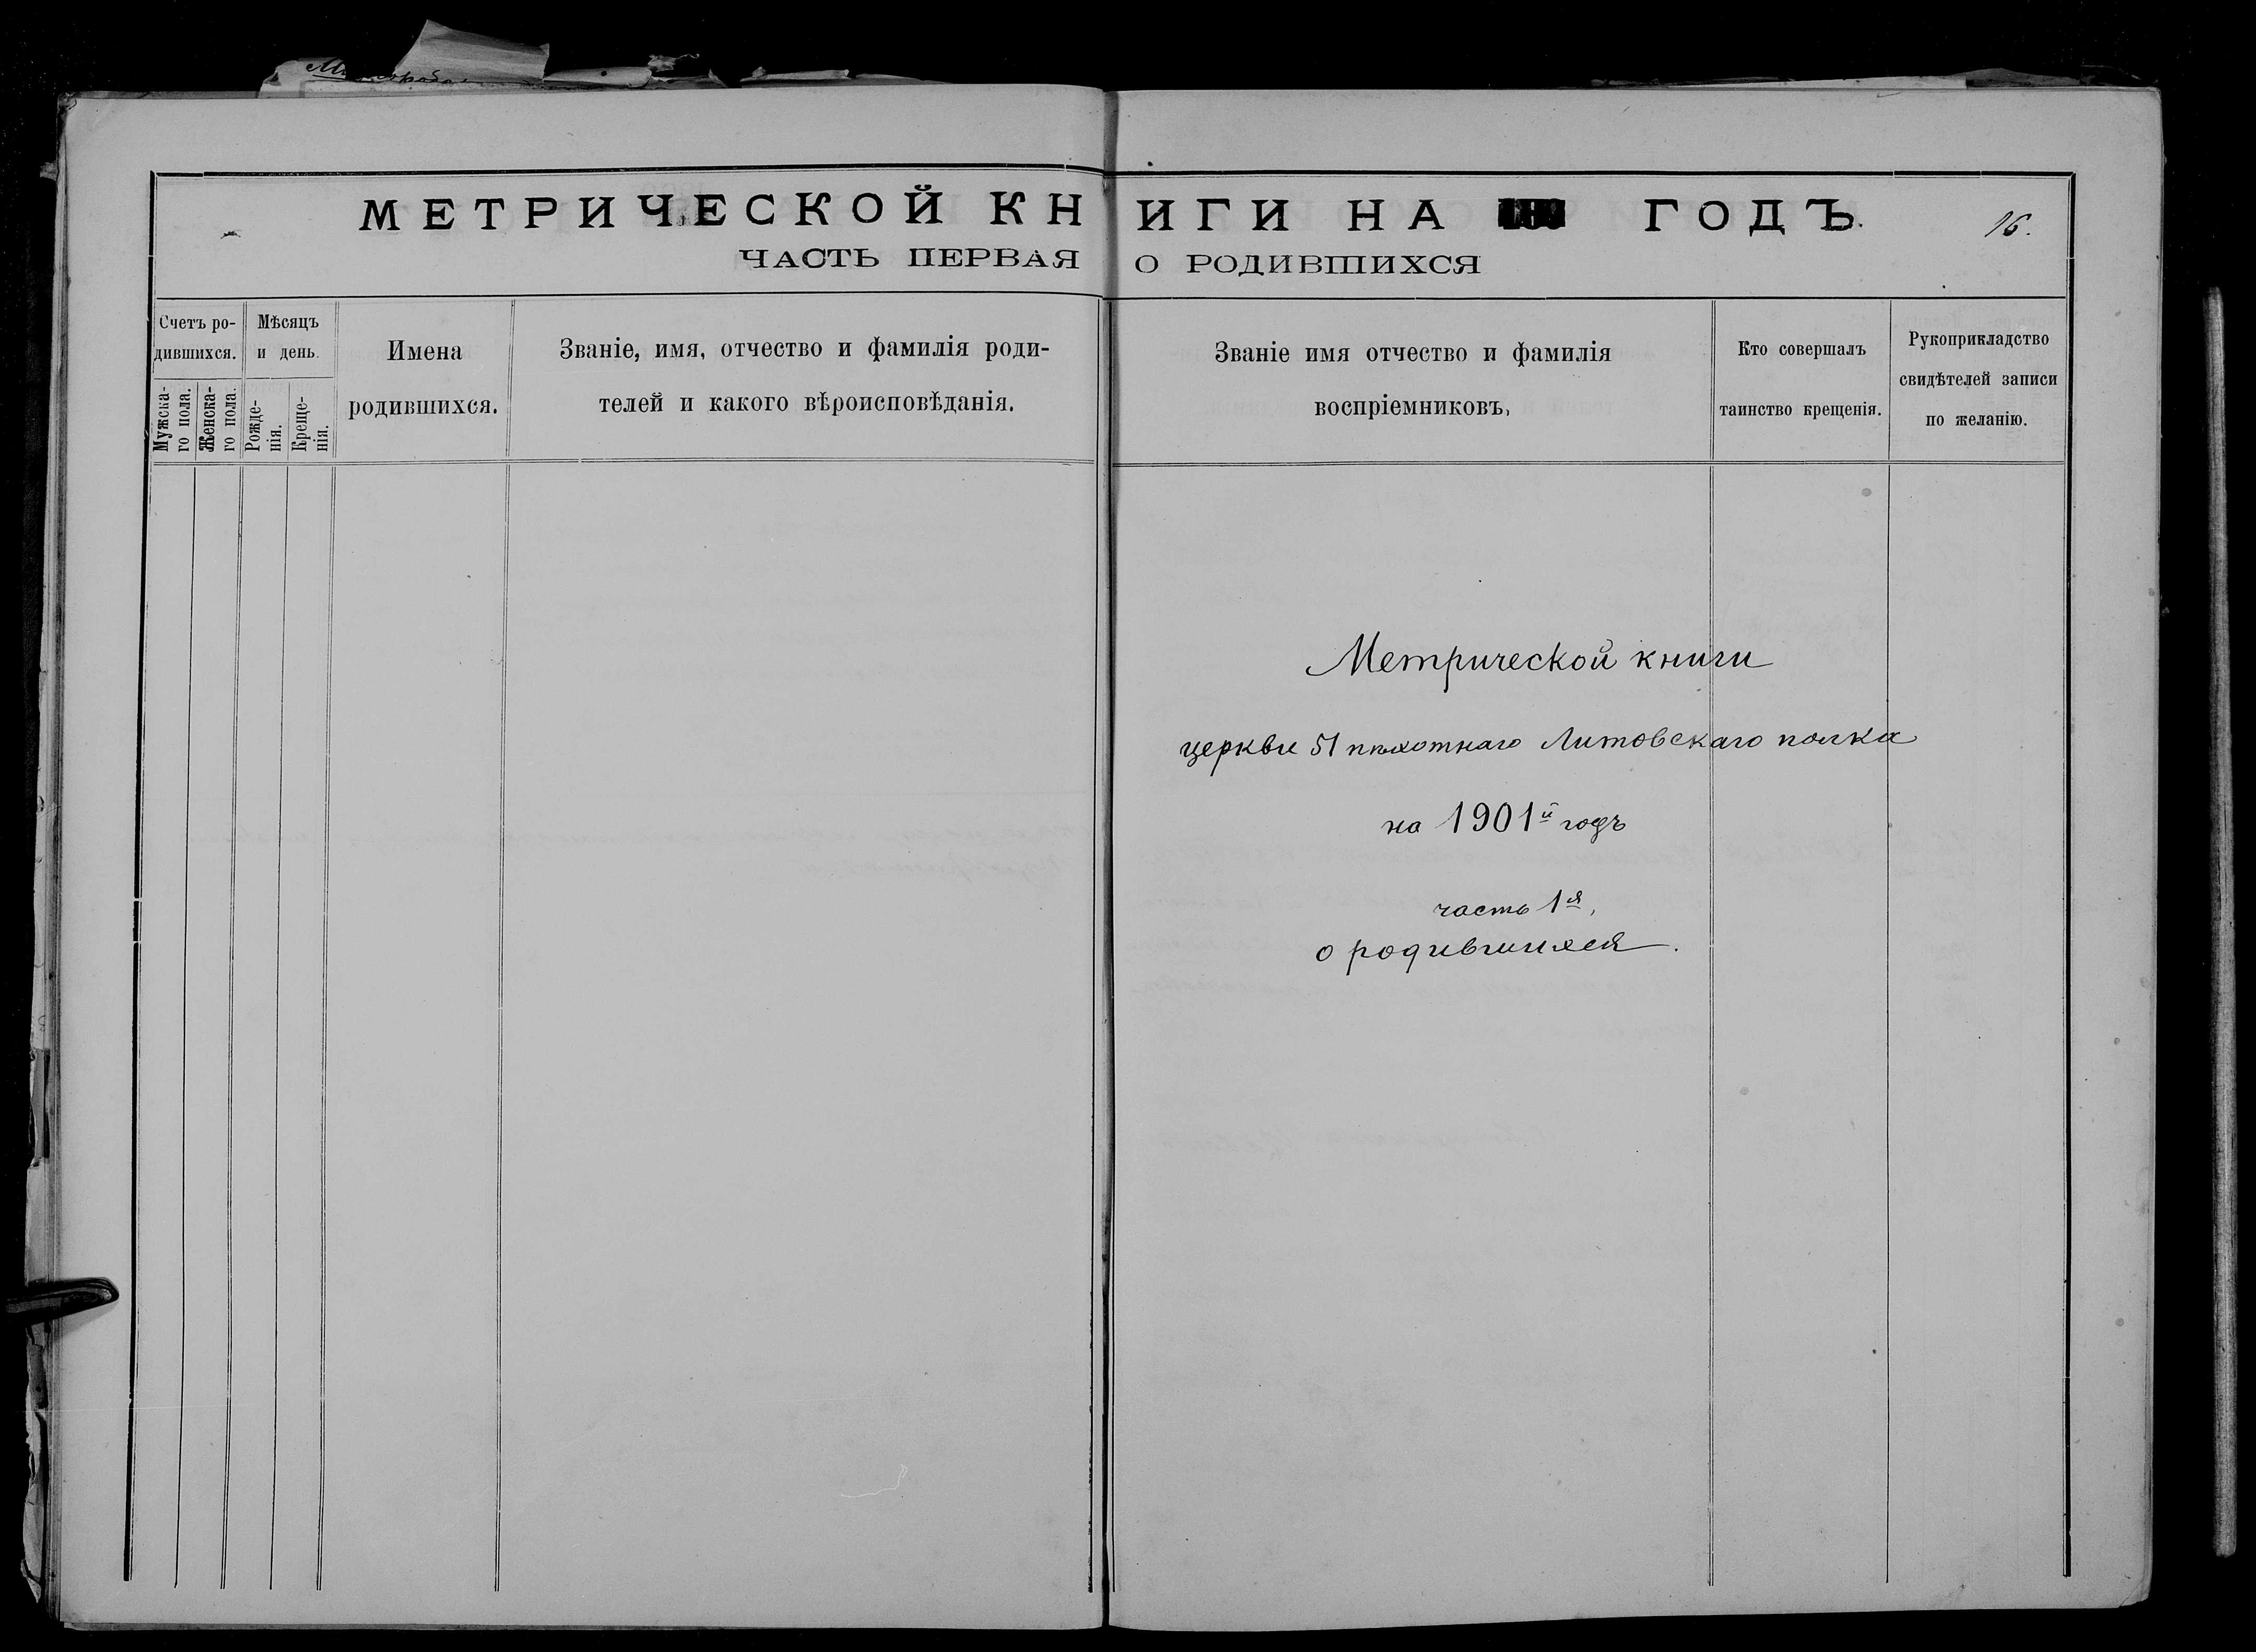 МЕТРИЧЕСКОЙ КНИГИ НА ГОДЪ.
16.
ЧАСТЬ ПЕРВАЯ О РОДИВШИХСЯ
Счетъ ро-
дившихся.
Мужска-
го пола.
Женска-
го пола.
Мѣсяцъ
и день.
Рожде-
нія.
Креще-
нія.
Имена
родившихся.
Званіе, имя, отчество и фамилія роди-
телей и какого вѣроисповѣданія.
Званіе имя отчество и фамилія
воспріемниковъ,
Кто совершалъ
таинство крещенія.
Рукоприкладство
свидѣтелей записи
по желанію.
Метрической книги
церкви 51 пѣхотнаго Литовскаго полка
на 1901й годъ
часть 1я,
о родившихся.